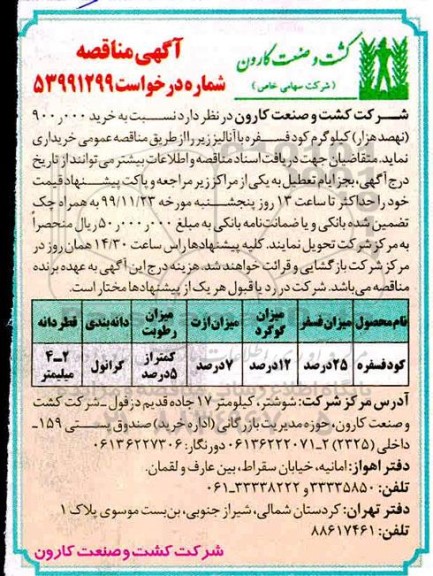 کشت و صنعت کارون
(شرکت سهامی خاص)
آگهی مناقصه
شماره درخواست ۵۳۹۹۱۲۹۹
شرکت کشت و صنعت کارون در نظر دارد نسبت به خرید ۹۰۰ر۰۰۰
(نهصد هزار) کیلوگرم کود فسفره با آنالیز زیر را از طریق مناقصه عمومی خریداری
نماید. متقاضیان جهت دریافت اسناد مناقصه و اطلاعات بیشتر می‌توانند از تاریخ
درج آگهی، بجز ایام تعطیل به یکی از مراکز زیر مراجعه و پاکت پیشنهاد قیمت
خود را حداکثر تا ساعت ۱۳ روز پنجشنبه مورخه ۹۹/۱۱/۲۳ به همراه چک
تضمین شده بانکی و یا ضمانت‌نامه بانکی به مبلغ ۵۰ر۰۰۰ر۰۰۰ ریال منحصراً
به مرکز شرکت تحویل نمایند. کلیه پیشنهادها راس ساعت ۱۴/۳۰ همان روز در
مرکز شرکت بازگشایی و قرائت خواهند شد. هزینه درج این آگهی به عهده برنده
مناقصه می‌باشد. شرکت در رد یا قبول هر یک از پیشنهادها مختار است.
نام محصول میزان فسفر میزان گوگرد میزان ازت میزان رطوبت دانه‌بندی قطر دانه
کود فسفره ۲۵درصد ۱۲درصد ۷درصد کمتر از ۵درصد گرانول ۲-۴ میلیمتر
آدرس مرکز شرکت: شوشتر، کیلومتر ۱۷ جاده قدیم دزفول ـ شرکت کشت
و صنعت کارون، حوزه مدیریت بازرگانی (اداره خرید) صندوق پستی ۱۵۹ـ
داخلی (۲۳۲۵) ۲ـ۰۶۱۳۶۲۲۲۰۷۱ دورنگار: ۰۶۱۳۶۲۲۷۳۰۶
دفتر اهواز: امانیه، خیابان سقراط، بین عارف و لقمان.
تلفن: ۳۳۳۳۵۸۵۰ و ۳۳۳۳۸۲۲۲ـ۰۶۱
دفتر تهران: کردستان شمالی، شیراز جنوبی، بن‌بست موسوی پلاک ۱
تلفن: ۸۸۶۱۷۴۶۱
شرکت کشت و صنعت کارون